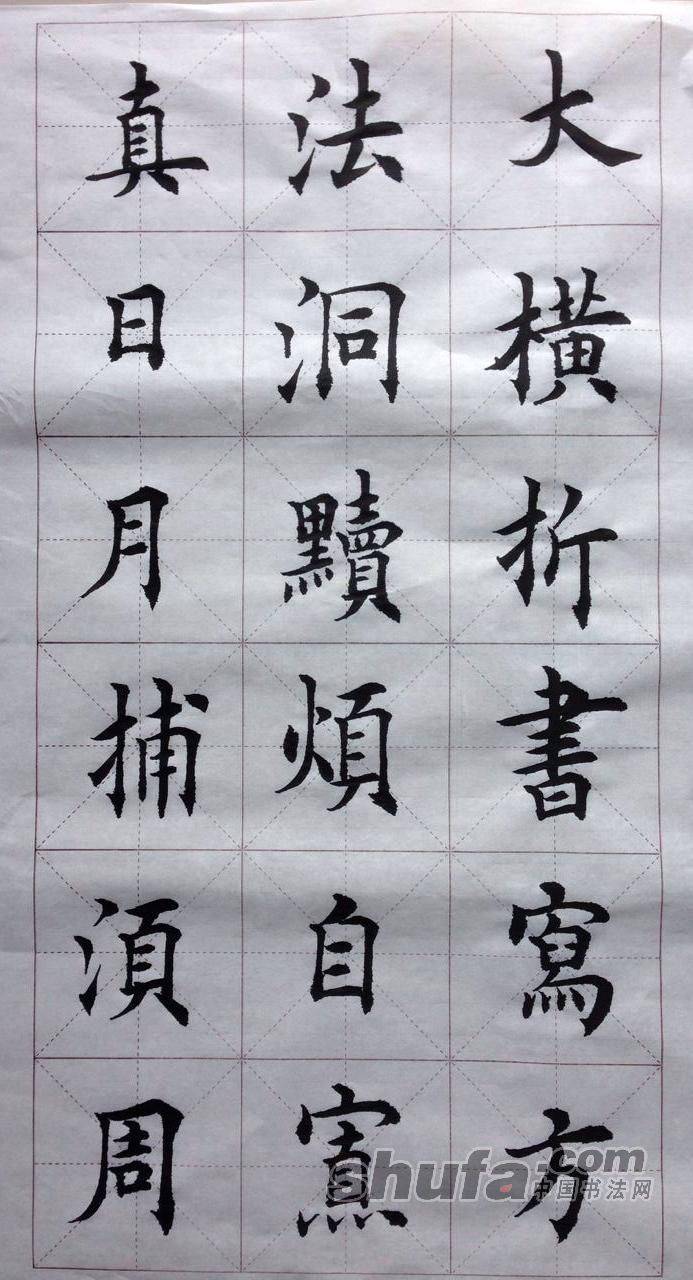 大橫折書寫方
法洞黷煩自
真日月捕湏周
shufa.com
中国书法网